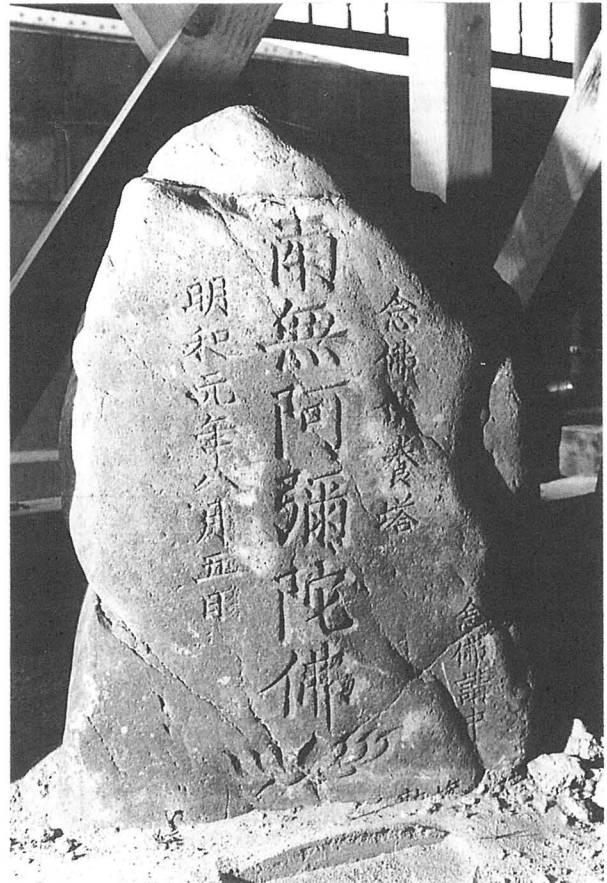 念佛供養塔
南無阿彌陀佛
明和元年八月五日
念佛講中